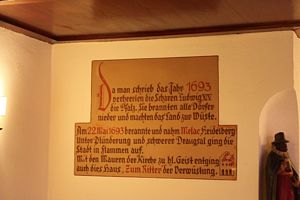 Da man schrieb das Jahr 1693
verheerten die Scharen Ludwig XIV.
die Pfalz. Sie brannten alle Dörfer
nieder und machten das Land zur Wüste.
Am 22. Mai 1693 berannte und nahm Melac Heidelberg
Unter Plünderung und schwerer Drangsal ging die
Stadt in Flammen auf.
Mit den Mauern der Kirche zu hl. Geist entging
auch dies Haus, Zum Ritter der Verwüstung.